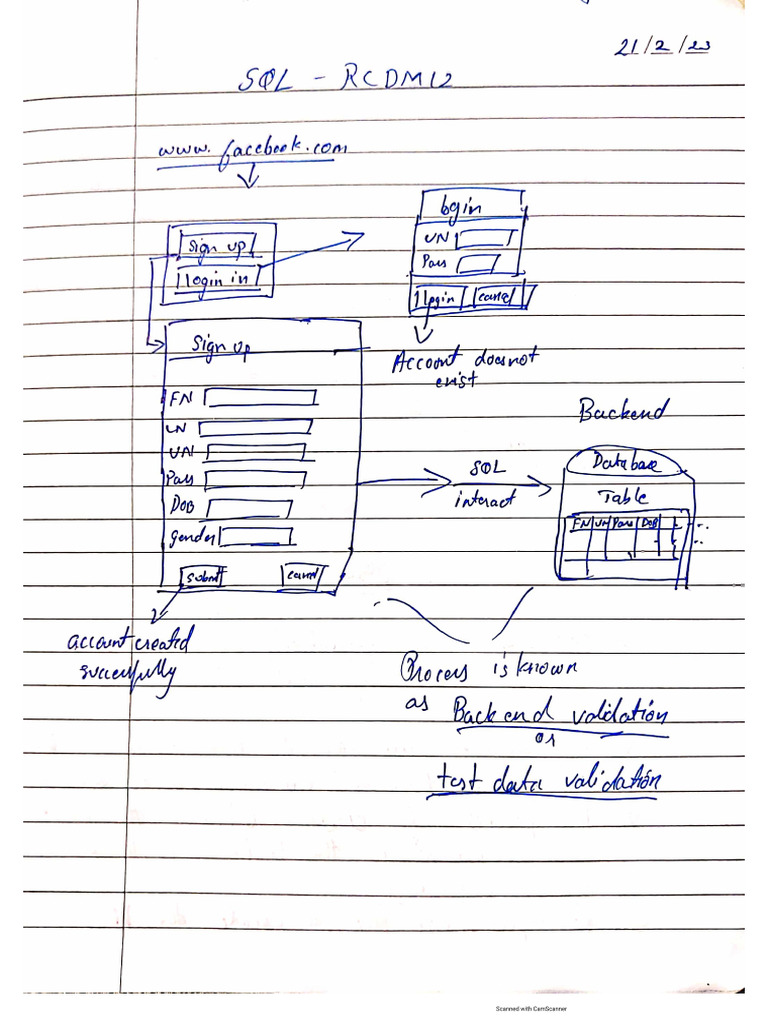 21/2/23
SQL - RCDM12
www.facebook.com
Sign up
login in
login
UN
Pass
login cancel
Account doesnot
exist
Sign up
FN
LN
UN
Pass
DOB
gender
submit cancel
account created
successfully
SQL
interact
Backend
Database
Table
FN UN Pass DOB
Process is known
as Backend validation
or
test data validation
Scanned with CamScanner